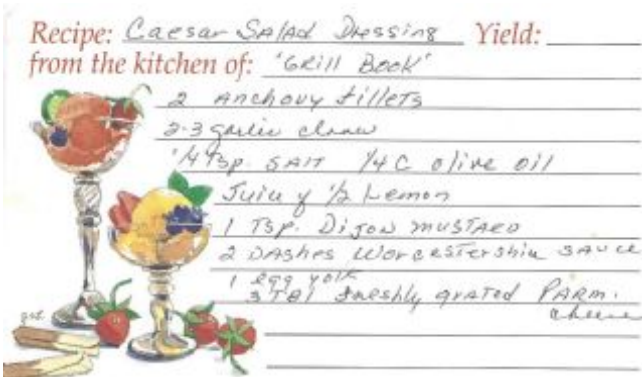 Recipe: Caesar Salad Dressing Yield:
from the kitchen of: 'Grill Book'
2 Anchovy fillets
2-3 garlic cloves
1/4 tsp. SAlT 1/4 C olive oil
Juice of 1/2 Lemon
1 Tsp. Dijon mustard
2 DAshes Worcestershire SAuce
1 egg yolk
3 TBl freshly grated PARM.
cheese